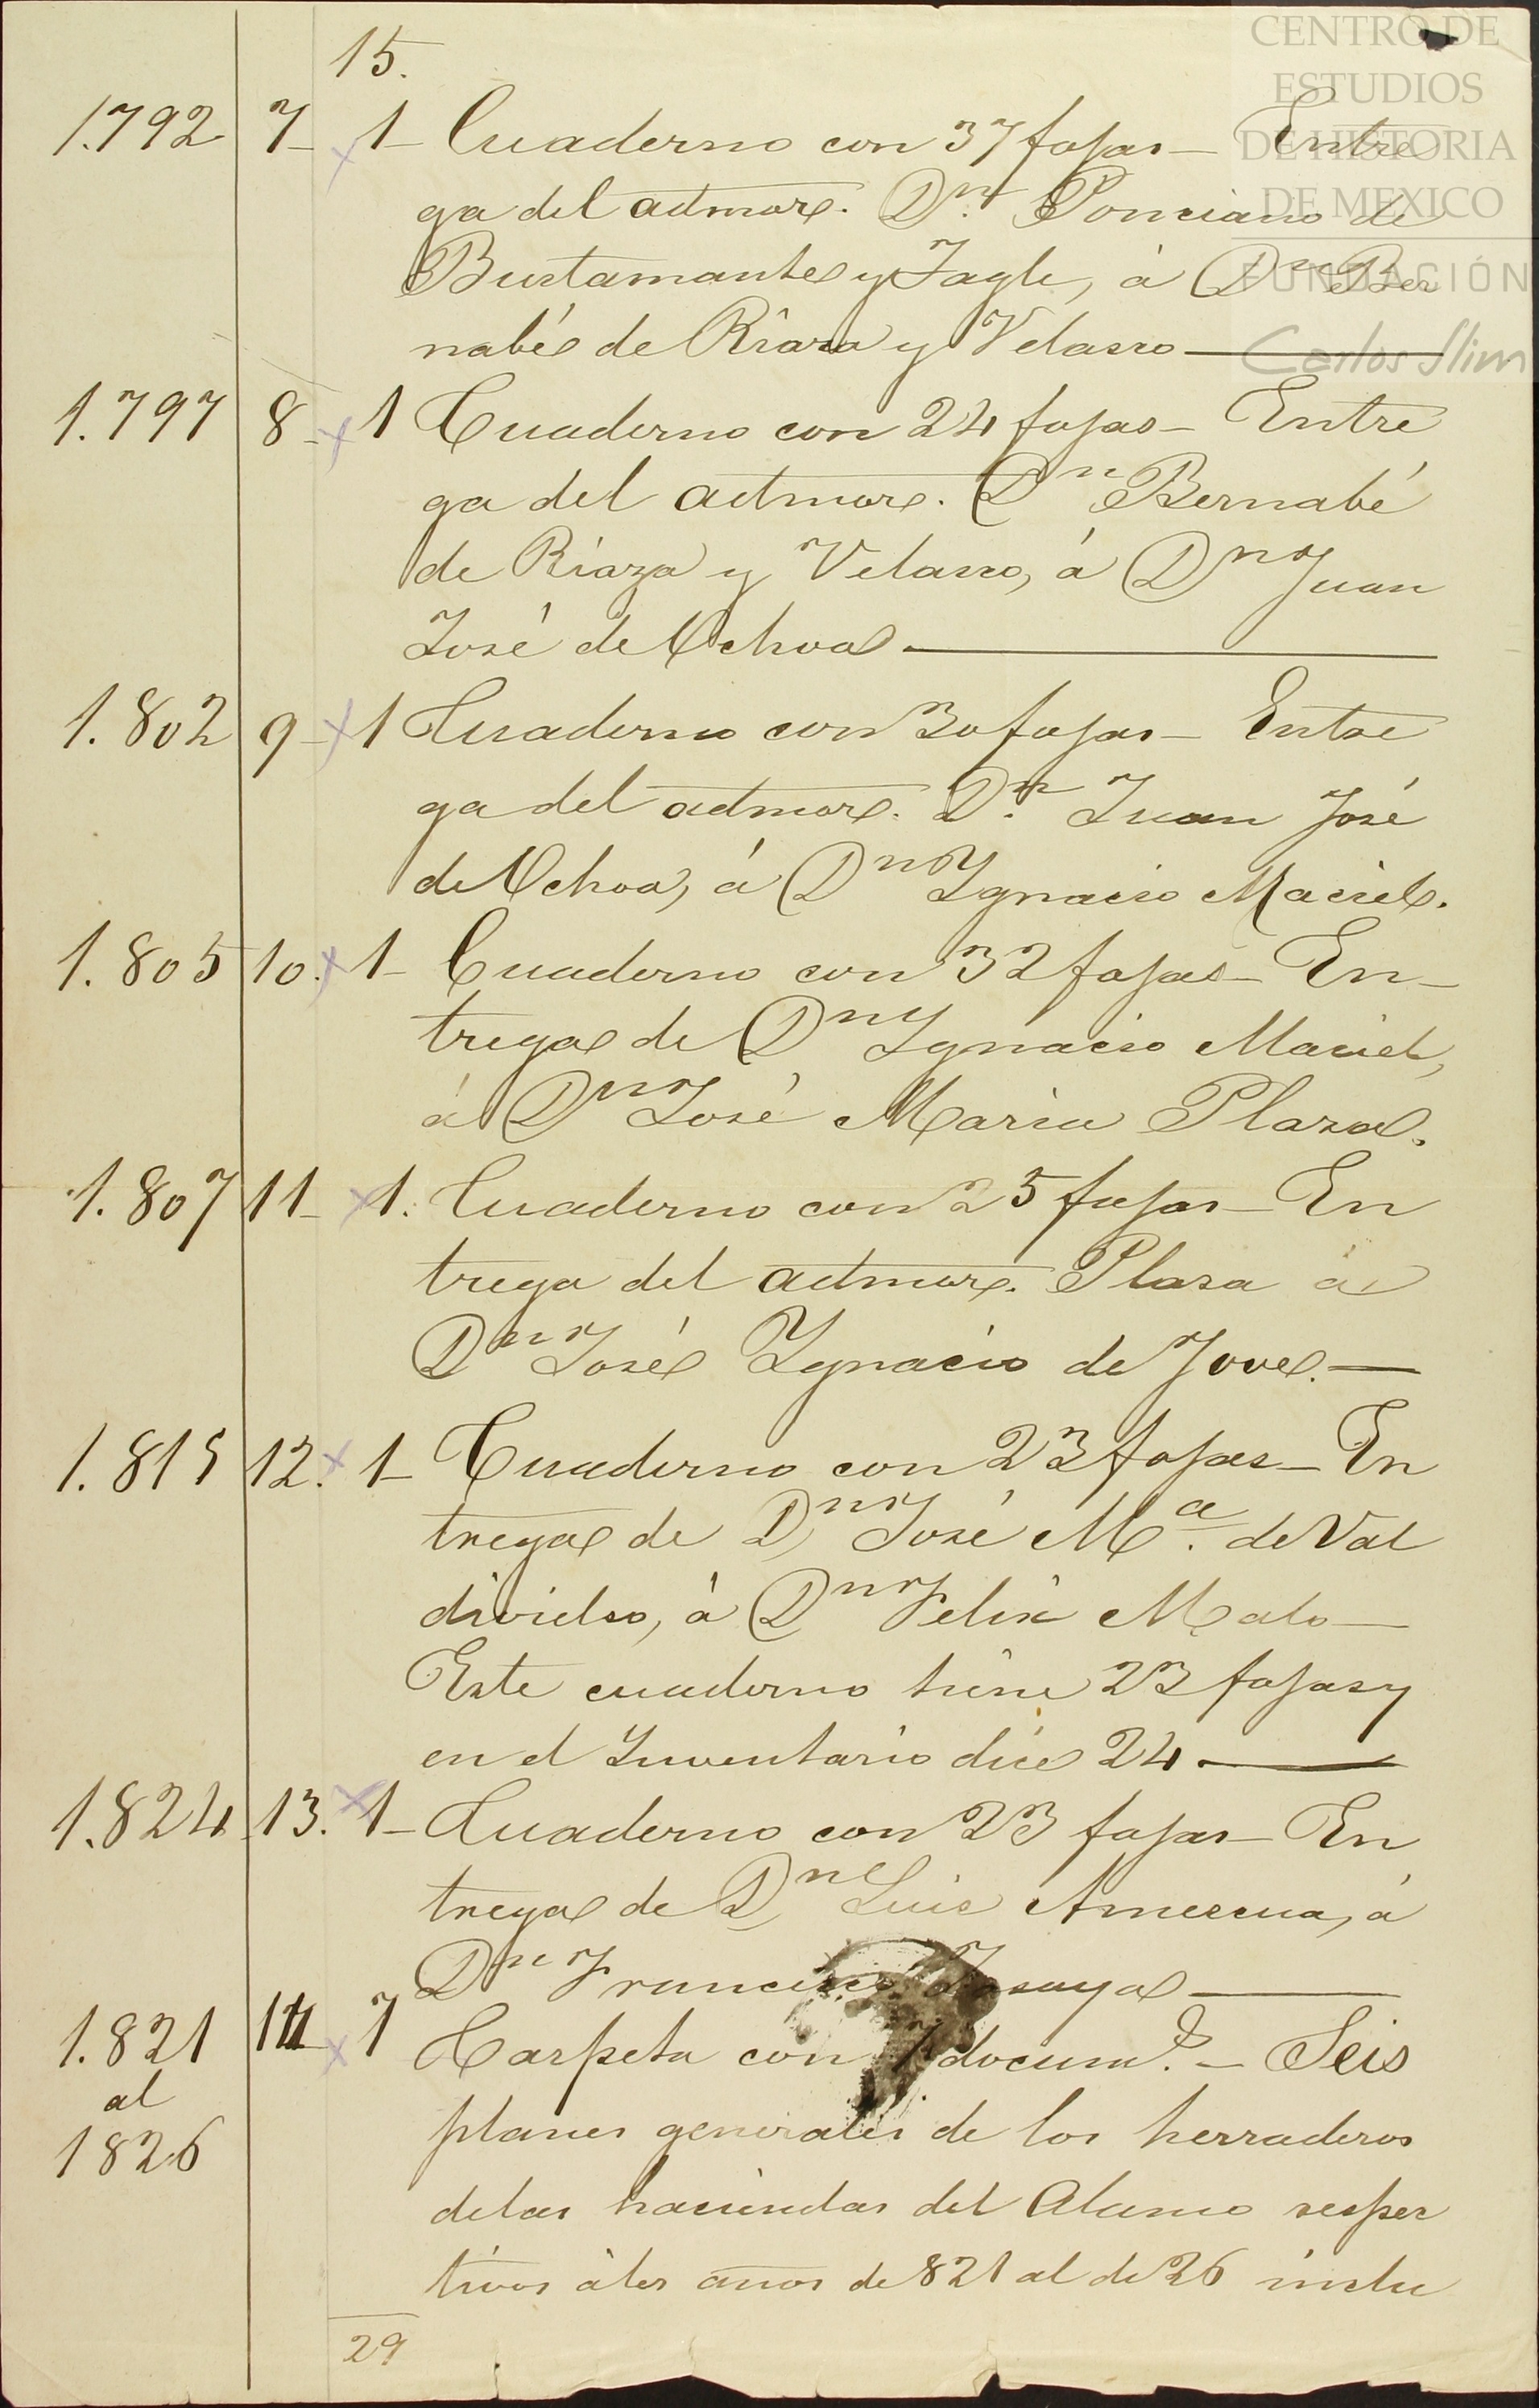 CENTRO DE
ESTUDIOS
DE HISTORIA
DE MEXICO
FUNDACIÓN
Carlos Slim
15.
1.792 7_ 1_ Cuaderno con 37 fojas_ Entre
ga del admor. Dn. Ponciano de
Bustamante y Tagle, á Dn Ber
nabé de Riaza y Velasco
1.797 8_ 1 Cuaderno con 24 fojas_ Entre
ga del admor. Dn Bernabé
de Riaza y Velasco, á Dn Juan
José de Ochoa
1.802 9_ 1 Cuaderno con 30 fojas_ Entre
ga del admor. Dn. Juan José
de Ochoa, á Dn Ygnacio Maciel.
1.805 10. 1_ Cuaderno con 32 fojas_ En_
trega de Dn Ygnacio Maciel,
á Dn José Maria Plaza.
1.807 11_ 1. Cuaderno con 25 fojas_ En
trega del admor. Plaza á
Dn José Ygnacio de Jove.
1.815 12. 1_ Cuaderno con 23 fojas_ En
trega de Dn José Ma. de Val
divielso, á Dn Felix Malo
Este cuaderno tiene 23 fojas y
en el Ynventario dice 24
1.824 13. 1_ Cuaderno con 23 fojas_ En
trega de Dn Luis Amecua, á
Dn Francisco
1.821 14_ 7 Carpeta con 7 docums. _ Seis
al
1826
planes generales de los herraderos
de las haciendas del Alamo respec
tivos á los años de 821 al de 26 inclu
29